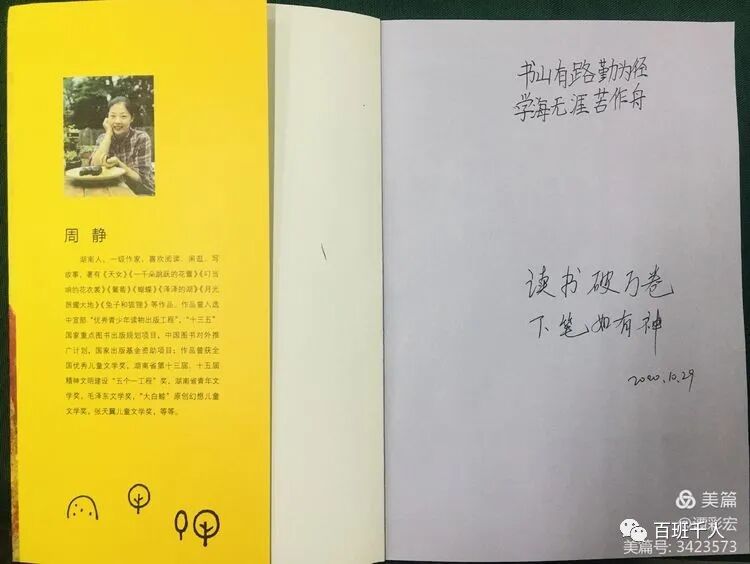 周 静
湖南人，一级作家，喜欢阅读、闲逛、写
故事，著有《天女》《一千朵跳跃的花蕾》《叮当
响的花衣裳》《鬈鬈》《蝴蝶》《泽泽的湖》《月光
照耀大地》《兔子和狐狸》等作品。作品曾入选
中宣部“优秀青少年读物出版工程”，“十三五”
国家重点图书出版规划项目，中国图书对外推
广计划，国家出版基金资助项目；作品曾获全
国优秀儿童文学奖，湖南省第十三届、十五届
精神文明建设“五个一工程”奖，湖南省青年文
学奖，毛泽东文学奖，“大白鲸”原创幻想儿童
文学奖，张天翼儿童文学奖，等等。
书山有路勤为径
学海无涯苦作舟
读书破万卷
下笔如有神
2020.10.29
美篇
@谭彩宏
百班千人
美篇号: 3423573